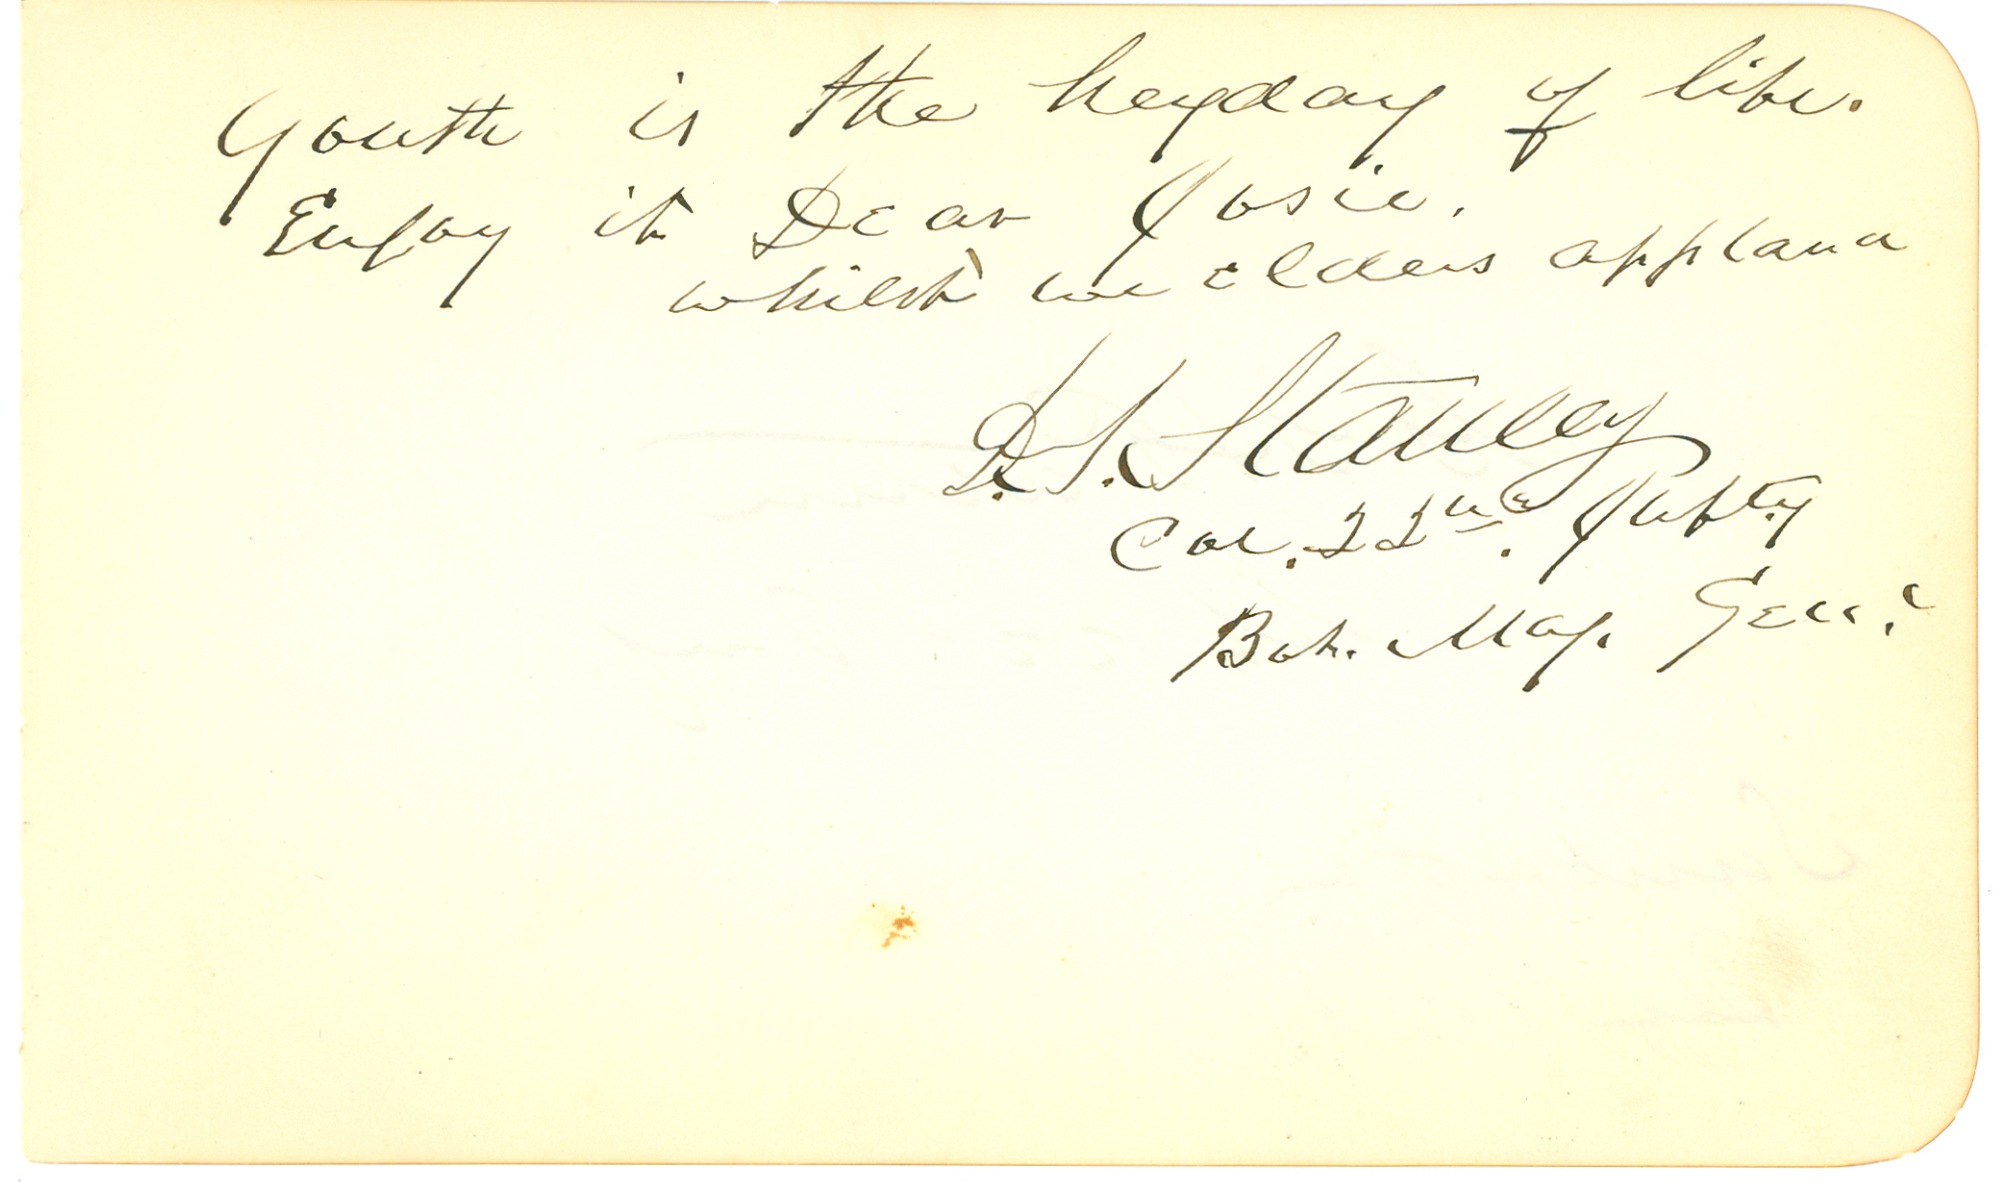 Youth is the heyday of life.
Enjoy it Dear Josie.
whilst we elders applaud
D.S. Stanley
Col. 22nd. Infty
Bvt. Maj. Genl.